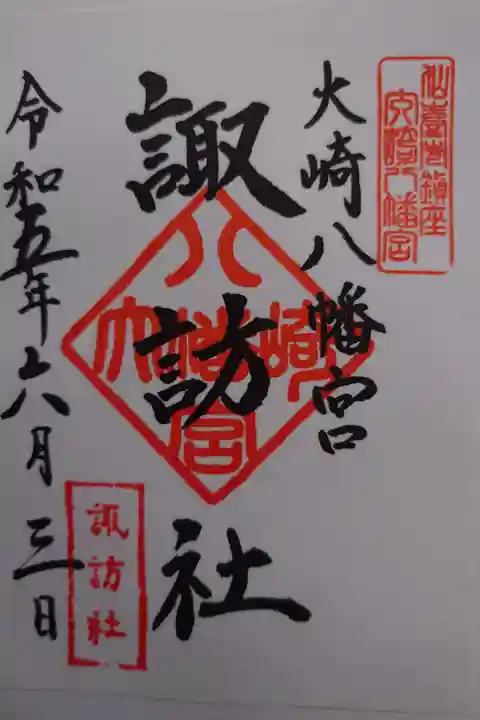 仙臺鎮座
大崎八幡宮
大崎八幡宮
諏訪社
大崎八幡宮
令和五年六月三日
諏訪社